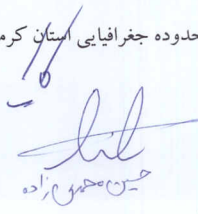 حدوده جغرافیایی استان کرم
حسین محمدی زاده